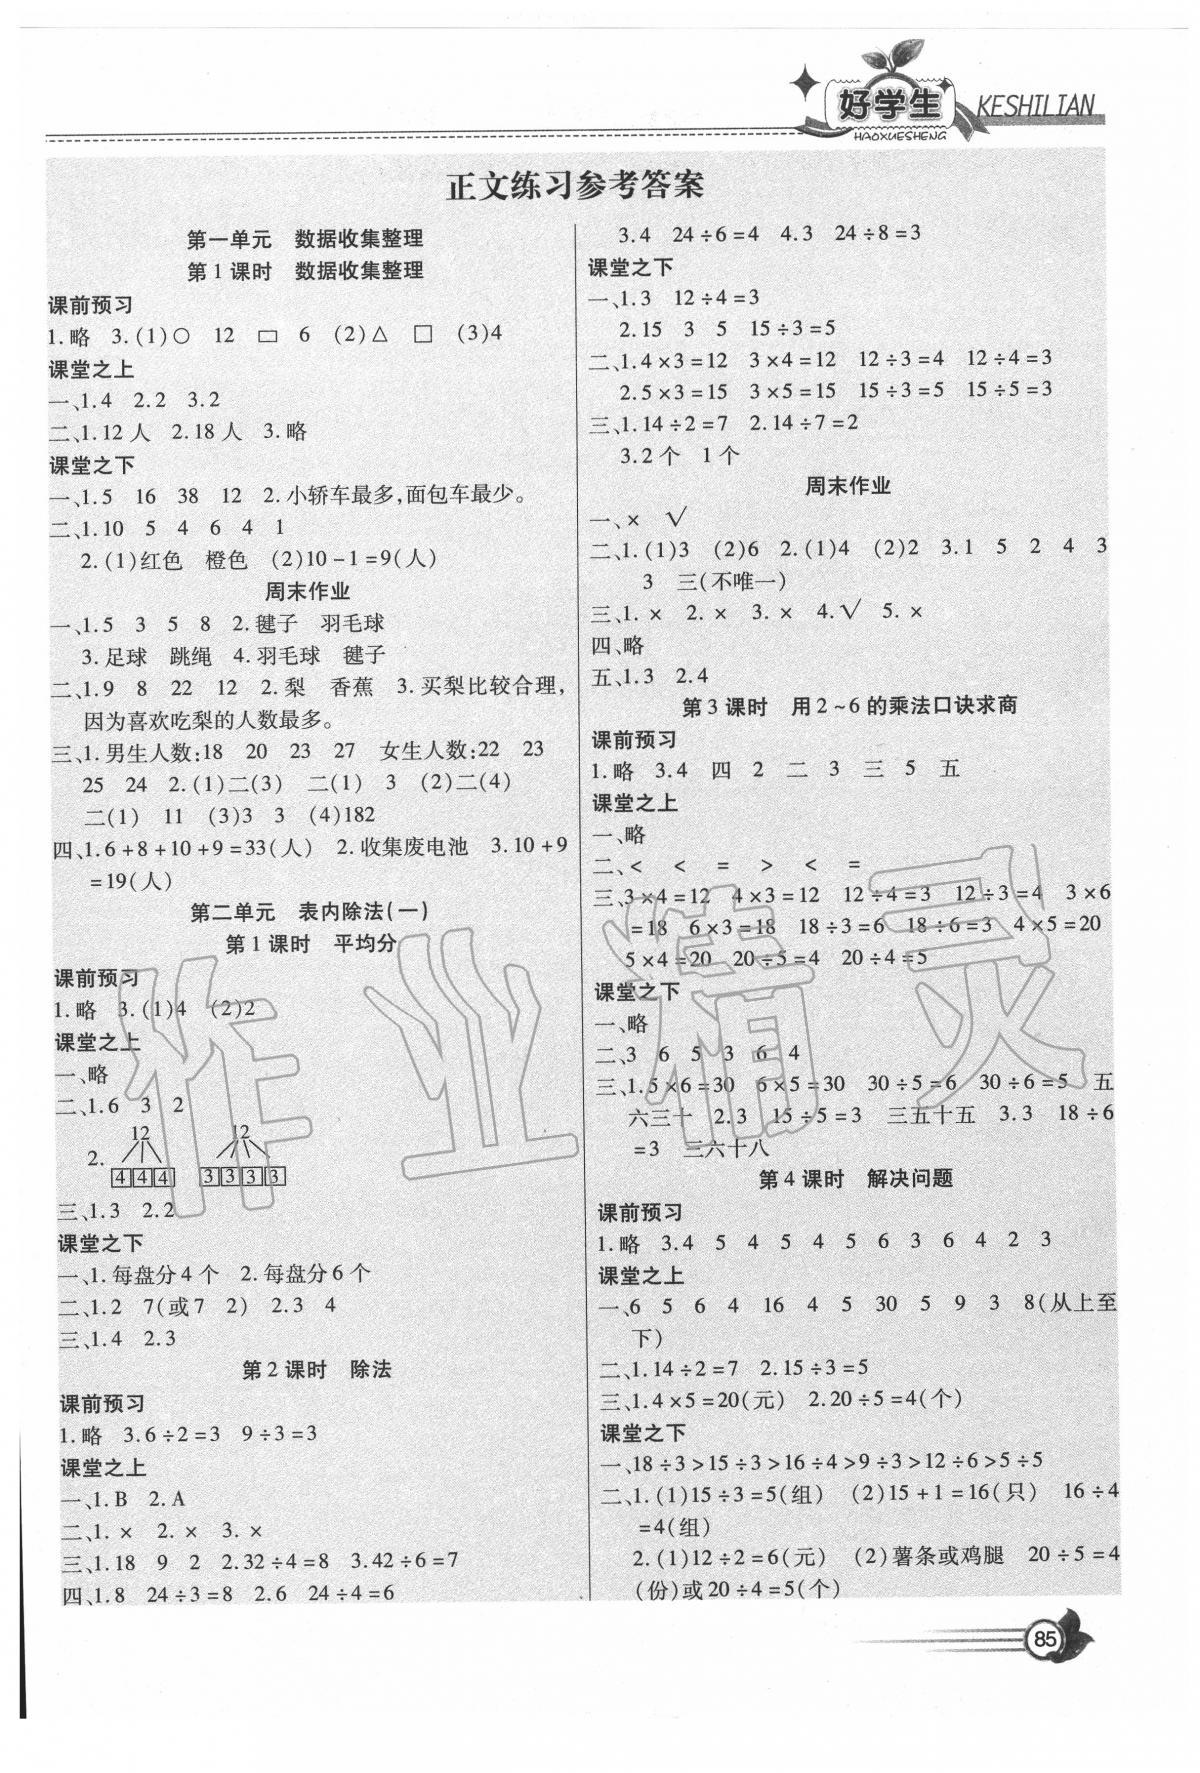 好学生
HAOXUESHENG
KESHILIAN
正文练习参考答案
第一单元 数据收集整理
第1课时 数据收集整理
课前预习
1.略 3.(1)○ 12 ▭ 6 (2)△ □ (3)4
课堂之上
一、1.4 2.2 3.2
二、1.12人 2.18人 3.略
课堂之下
一、1.5 16 38 12 2.小轿车最多,面包车最少。
二、1.10 5 4 6 4 1
2.(1)红色 橙色 (2)10-1=9(人)
周末作业
一、1.5 3 5 8 2.毽子 羽毛球
3.足球 跳绳 4.羽毛球 毽子
二、1.9 8 22 12 2.梨 香蕉 3.买梨比较合理,
因为喜欢吃梨的人数最多。
三、1.男生人数:18 20 23 27 女生人数:22 23
25 24 2.(1)二(3) 二(1) 3 (2)二(4)
二(1) 11 (3)3 3 (4)182
四、1.6+8+10+9=33(人) 2.收集废电池 3.10+9
=19(人)
第二单元 表内除法(一)
第1课时 平均分
课前预习
1.略 3.(1)4 (2)2
课堂之上
一、略
二、1.6 3 2
12 12
2. 4 4 4 3 3 3 3
三、1.3 2.2
课堂之下
一、1.每盘分4个 2.每盘分6个
二、1.2 7(或7 2) 2.3 4
三、1.4 2.3
第2课时 除法
课前预习
1.略 3.6÷2=3 9÷3=3
课堂之上
一、1.B 2.A
二、1.× 2.× 3.×
三、1.18 9 2 2.32÷4=8 3.42÷6=7
四、1.8 24÷3=8 2.6 24÷4=6
3.4 24÷6=4 4.3 24÷8=3
课堂之下
一、1.3 12÷4=3
2.15 3 5 15÷3=5
二、1.4×3=12 3×4=12 12÷3=4 12÷4=3
2.5×3=15 3×5=15 15÷3=5 15÷5=3
三、1.14÷2=7 2.14÷7=2
3.2个 1个
周末作业
一、× √
二、1.(1)3 (2)6 2.(1)4 (2)2 3.1 5 2 4 3
3 三(不唯一)
三、1.× 2.× 3.× 4.√ 5.×
四、略
五、1.3 2.4
第3课时 用2~6的乘法口诀求商
课前预习
1.略 3.4 四 2 二 3 三 5 五
课堂之上
一、略
二、< < = > < =
三、3×4=12 4×3=12 12÷4=3 12÷3=4 3×6
=18 6×3=18 18÷3=6 18÷6=3 4×5=20
5×4=20 20÷5=4 20÷4=5
课堂之下
一、略
二、3 6 5 3 6 4
三、1.5×6=30 6×5=30 30÷5=6 30÷6=5 五
六三十 2.3 15÷5=3 三五十五 3.3 18÷6
=3 三六十八
第4课时 解决问题
课前预习
1.略 3.4 5 4 5 4 5 6 3 6 4 2 3
课堂之上
一、6 5 6 4 16 4 5 30 5 9 3 8(从上至
下)
二、1.14÷2=7 2.15÷3=5
三、1.4×5=20(元) 2.20÷5=4(个)
课堂之下
一、18÷3>15÷3>16÷4>9÷3>12÷6>5÷5
二、1.(1)15÷3=5(组) (2)15+1=16(只) 16÷4
=4(组)
2.(1)12÷2=6(元) (2)薯条或鸡腿 20÷5=4
(份)或20÷4=5(个)
作业精灵
85